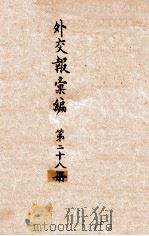 外交報彙編
第二十八冊